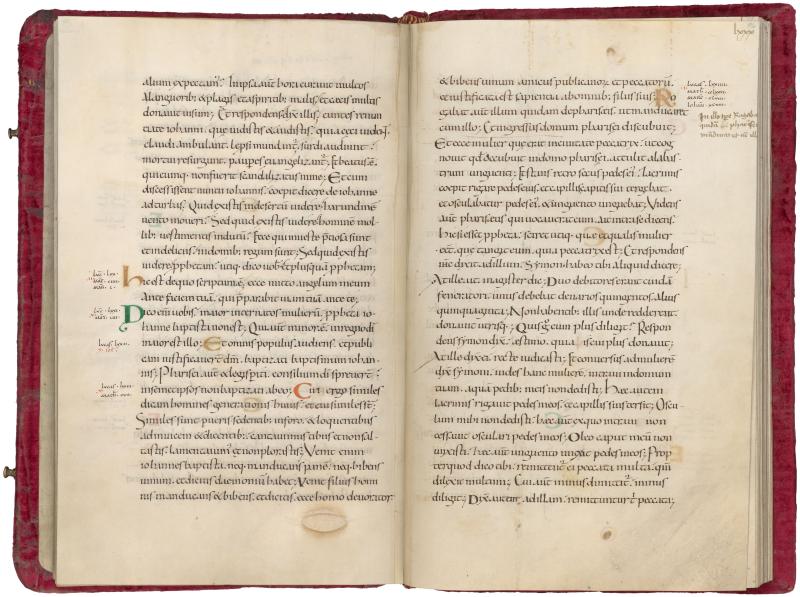 alium expectam̄; Inipsa aut̄ hora curauit multos
Alanguorib; & plagis et sp̄ritib; malis; et cecis multis
donauit uisum; Et respondens dix̄ illis; euntes renun
tiate iohanni. quę uidistis et audistis; quia ceci uident;
claudi ambulant. leprosi mundant̄. surdi audiunt.
mortui resurgunt. pauperes euangelizant̄. Et beatus ē.
quicunq; non fuerit scandalizatus in me; Et cum
discessissent nuncii iohannis. coepit dicere de iohanne
ad turbas; Quid existis in desertū uidere harundinē
uento moueri. Sed quid existis uidere hominē mol
lib; uestimentis indutū. Ecce qui in ueste p̄ciosa sunt
et indeliciis. in domib; regum sunt; Sed quid existis
uidere p̄phetam. utiq; dico uob̄ et plus quā p̄phetam.
hic est de quo scriptum ē. ecce mitto angelum meum
Ante faciem tuā. qui p̄parabit uiam tuā ante te;
Dico eni uobis. maior inter natos mulierū. p̄pheta io
hanne baptista non est; Qui aut̄ minor ē in regno dī
maior est illo; Et omnis populus audiens. et publi
cani iustificauerī dm̄. baptizati baptismum iohan
nis; Pharisei aut̄ et legisperiti. consilium dī spreuerī
in semet ipsos non baptizati ab eo; Cui ergo similes
dicam homines generationis huius. et cui similes st̄;
Similes sunt pueris sedentib; in foro. & loquentibus
ad inuicem et dicentib; cantauimus tibiis et non sal
tastis. lamentauim̄ et non plorastis; Venit enim
iohannes baptista neq; manducans panē. neq; bibens
uinum. et dicitis daemoniū habet; Venit filius homi
nis manducans & bibens. et dicitis. ecce homo deuorator
& bibens uinum. amicus publicanorȝ et peccatorū.
et iustificata est sapientia ab omnib; filiis suis; Ro
gabat aut̄ illum quidam de phariseis. ut manducaret
cum illo; Et ingressus domum pharisei discubuit;
Et ecce mulier que erat in ciuitate peccatrix. ut cog
nouit qd̄ accubuit in domo pharisei. attulit alabas
trum unguenti; Et stans retro secus pedes ei. Lacrimis
coepit rigare pedes eius. et capillis capitis sui tergebat.
et osculabatur pedes ei. & unguento unguebat; Videns
aut̄ phariseus qui uocauerat eum. ait intra se dicens.
hic si esset p̄pheta. sciret utiq; quę et qualis mulier
eēt. quę tangit eum. quia peccatrix est; Et respondens
ihc̄ dixit ad illum. Symon habeo tibi aliquid dicere;
At ille ait. magister dic; Duo debitores erant cuidā
feneratori. unus debebat denarios quingentos. Alius
quinquaginta; Non habentib; illis unde redderent.
donauit utrisq;; Quis ḡ eum plus diligit. Respon
dens symon dix̄. aestimo. quia is cui plus donauit;
At ille dix̄ ei. recte iudicasti; Et conuersus ad mulierē
dix̄ symoni. uides hanc mulierē. intraui in domum
tuam. aquā pedib; meis non dedisti; Haec autem
lacrimis rigauit pedes meos. et capillis suis tersit; Oscu
lum mihi non dedisti; haec aut̄ ex quo intraui non
cessauit osculari pedes meos; Oleo caput meū non
unxisti. haec aut̄ unguento unxit pedes meos; Prop
ter quod dico tibi. remittunt̄ ei peccata multa. qm̄
dilexit multum; Cui aut̄ minus dimittit̄. minus
diligit; Dix̄ autem ad illam. remittuntur t̄ peccata;